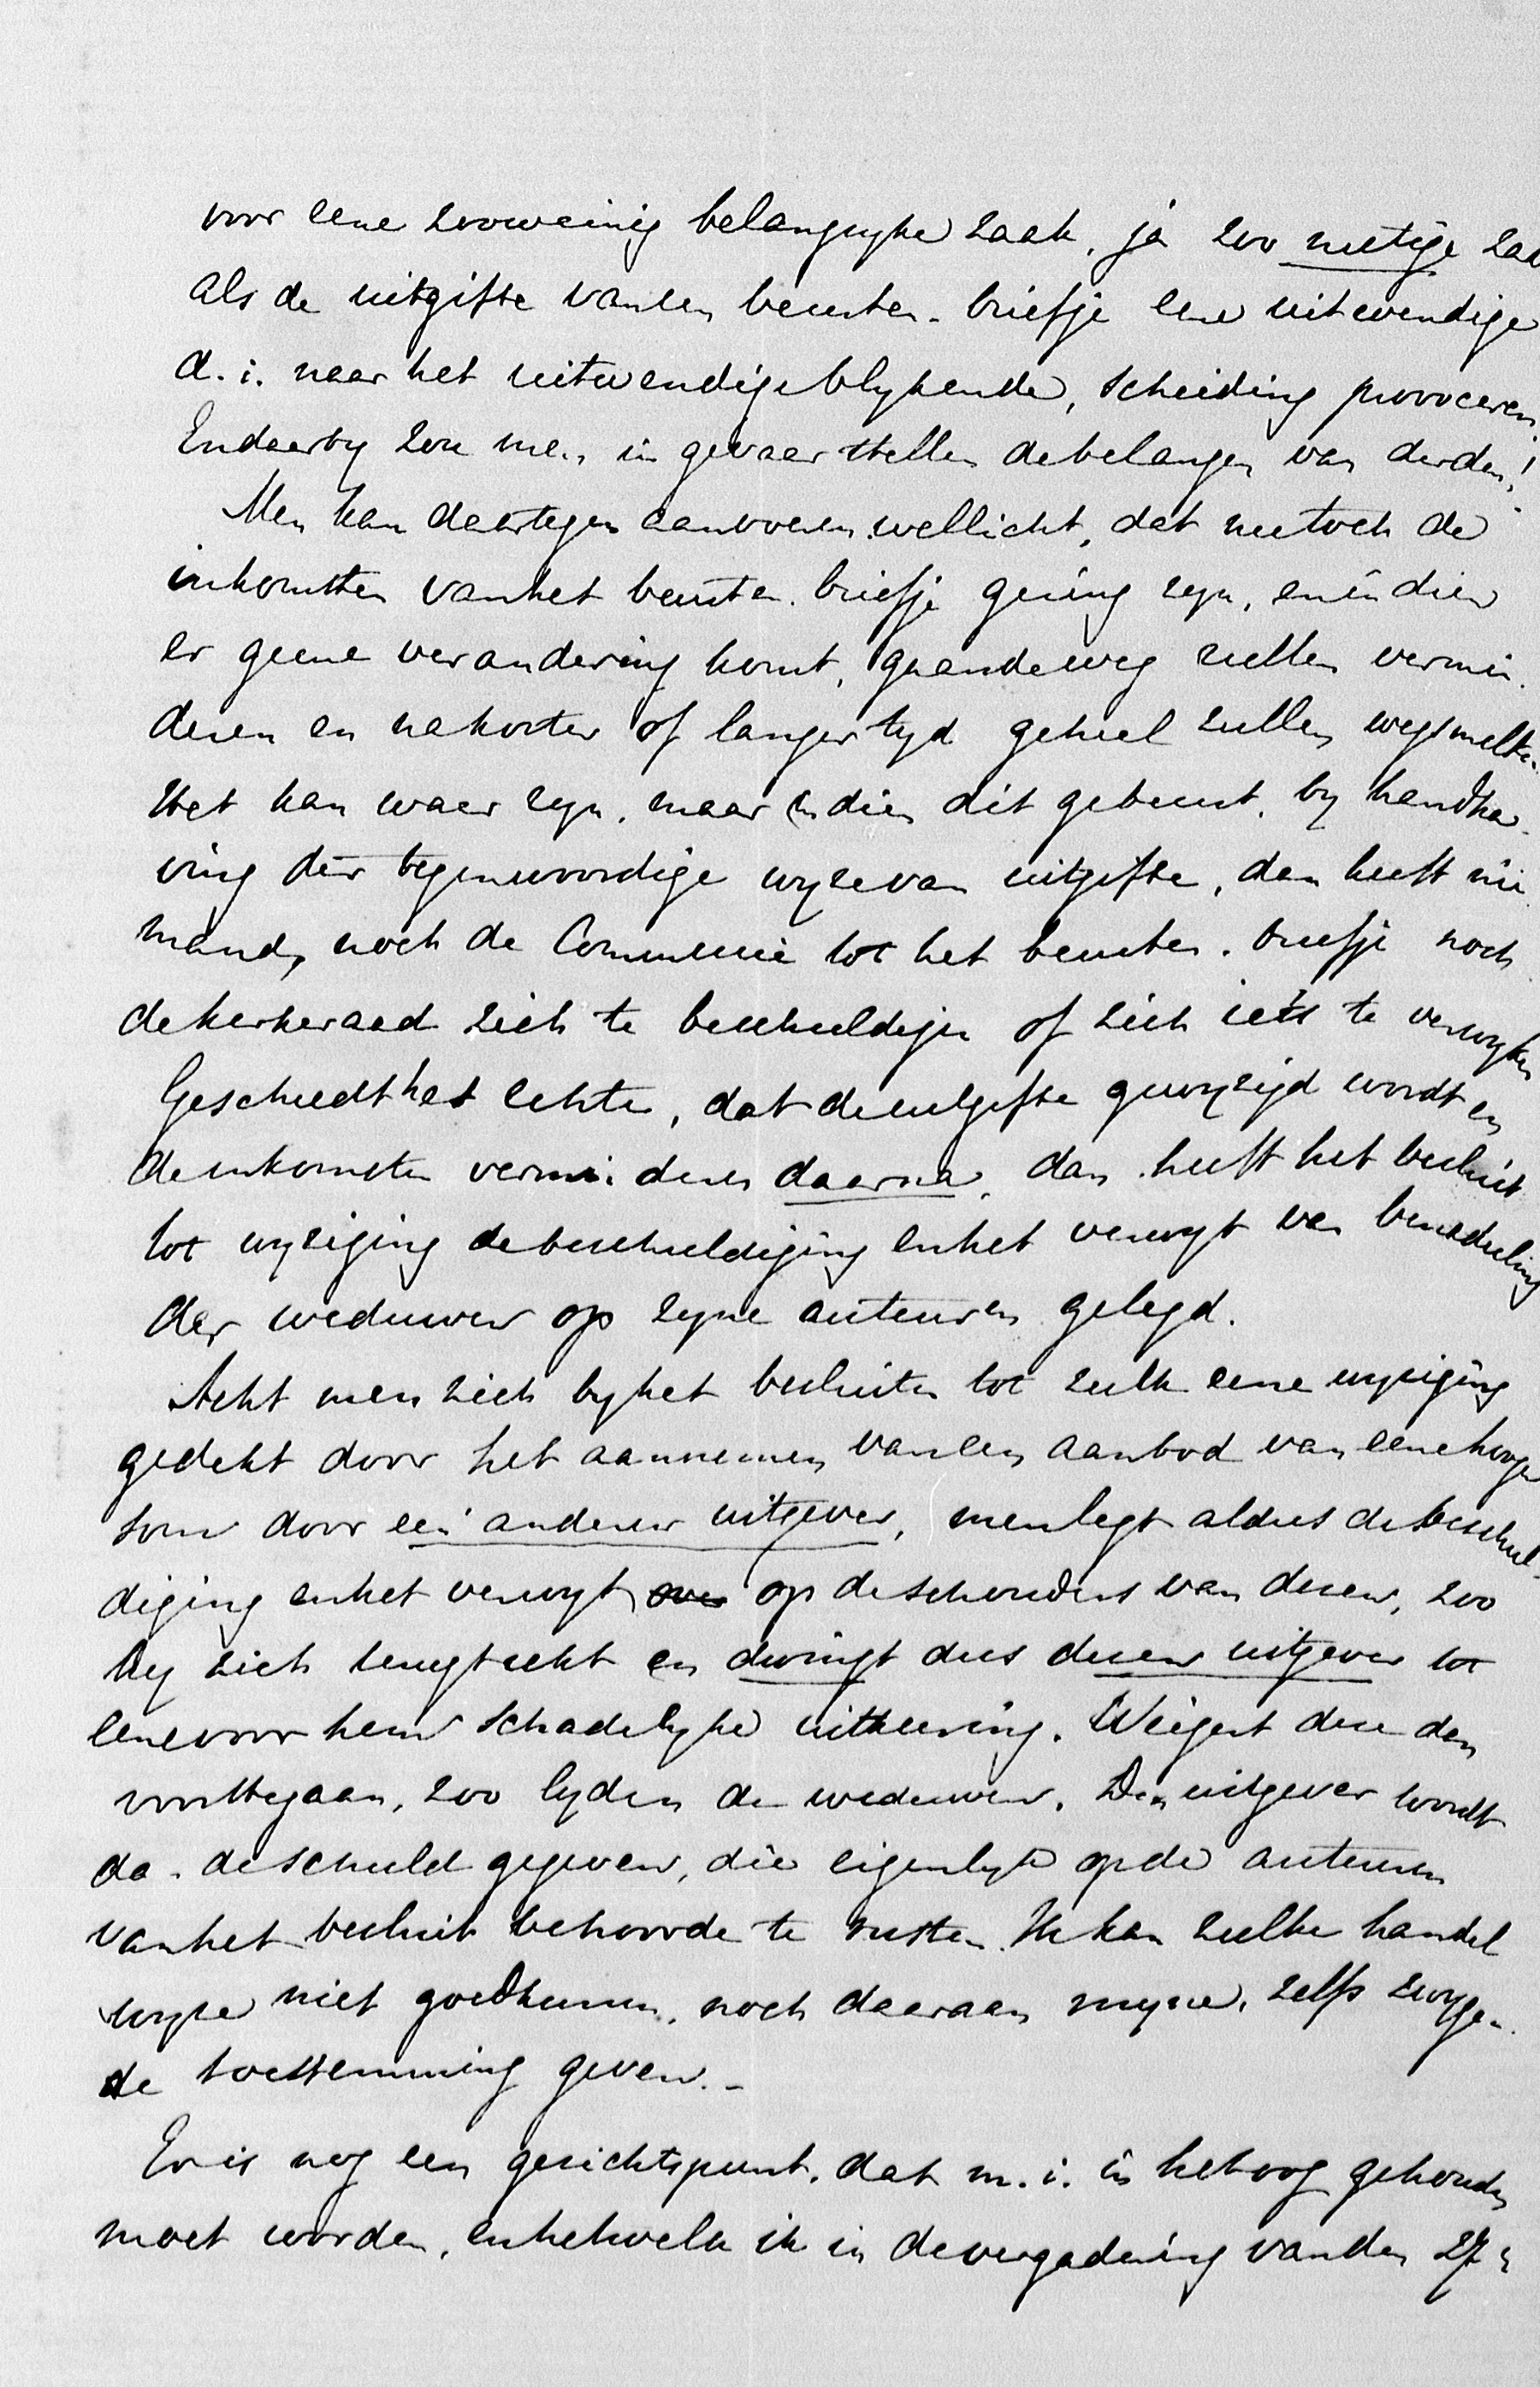 voor eene zooweinig belangryke zaak, ja zoo nietige zaa
als de uitgifte van een beurten-briefje eene uitwendige
d.i. naar het uitwendige blykende, scheiding provoceren.
En daarby zou men in gevaar stellen de belangen van derden!
Men kan daartegen aanvoeren wellicht, dat nu toch de
inkomsten van het beurten-briefje gering zyn, en indien
er geene verandering komt, gaandeweg zullen vermin-
deren en na korter of langer tyd geheel zullen wegsmelten.
Het kan waar zyn, maar indien dit gebeurt, by handha-
ving der tegenwoordige wyze van uitgifte, dan heeft nie
mand, noch de Commissie tot het beurten-briefje noch
de kerkeraad zich te beschuldigen of zich iets te verwyten
Geschiedt het echter, dat de uitgifte gewyzigd wordt en
de inkomsten verminderen daarna, dan heeft het besluit
tot wyziging de beschuldiging en het verwyt van benadeeling
der weduwen op zyne auteuren gelegd.
Acht men zich by het besluiten tot zulk eene wyziging
gedekt door het aannemen van een aanbod van eene hooger
som door een anderen uitgever, men legt aldus de beschul-
diging en het verwyt over op de schouders van dezen, zoo
hy zich terugtrekt en dwingt dus dezen uitgever tot
eene voor hem schadelyke uitkeering. Weigert deze dan
voort te gaan, zoo lyden de weduwen. Den uitgever wordt
dan de schuld gegeven, die eigenlyk op de auteuren
van het besluit behoorde te rusten. Ik kan zulke handel
wyze niet goedkeuren, noch daaraan myne, zelfs zwygen-
de toestemming geven.-
Er is nog een gezichtspunt, dat m.i. in het oog gehouden
moet worden, en hetwelk ik in de vergadering van den 27n